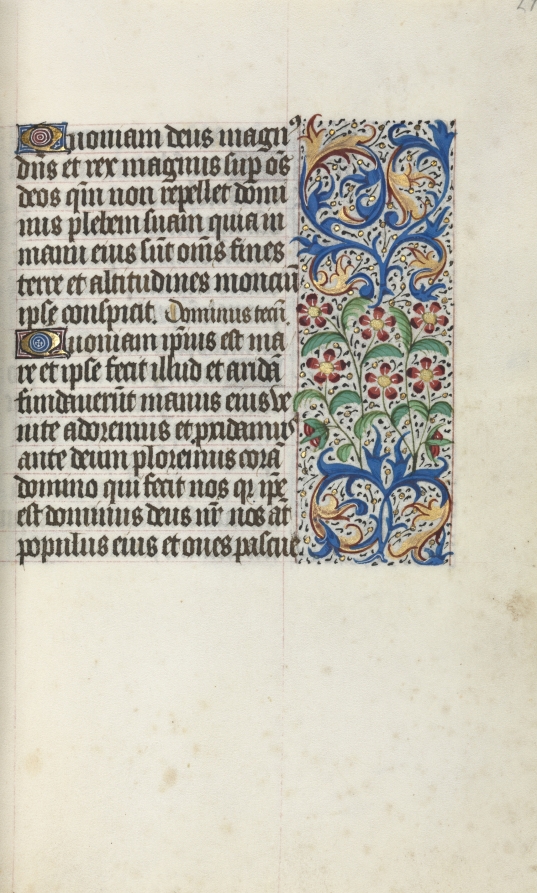 Quoniam deus magnꝰ
dn̄s et rex magnus sup̱ os
deos qm̄ non repellet domi
nus plebem suam quia in
manu eius sūt om̄s fines
terre et altitudines monciū
ipse conspicit. Dominus tecū.
Quoniam ip̄ius est ma
re et ipse fecit illud et aridā
fundauerūt manus eius ve
nite adoremus et p̱cidamus
ante deum ploremus corā
domino qui fecit nos qꝛ ip̄e
est dominus deus nr̄ nos āt
populus eius et oues pascue